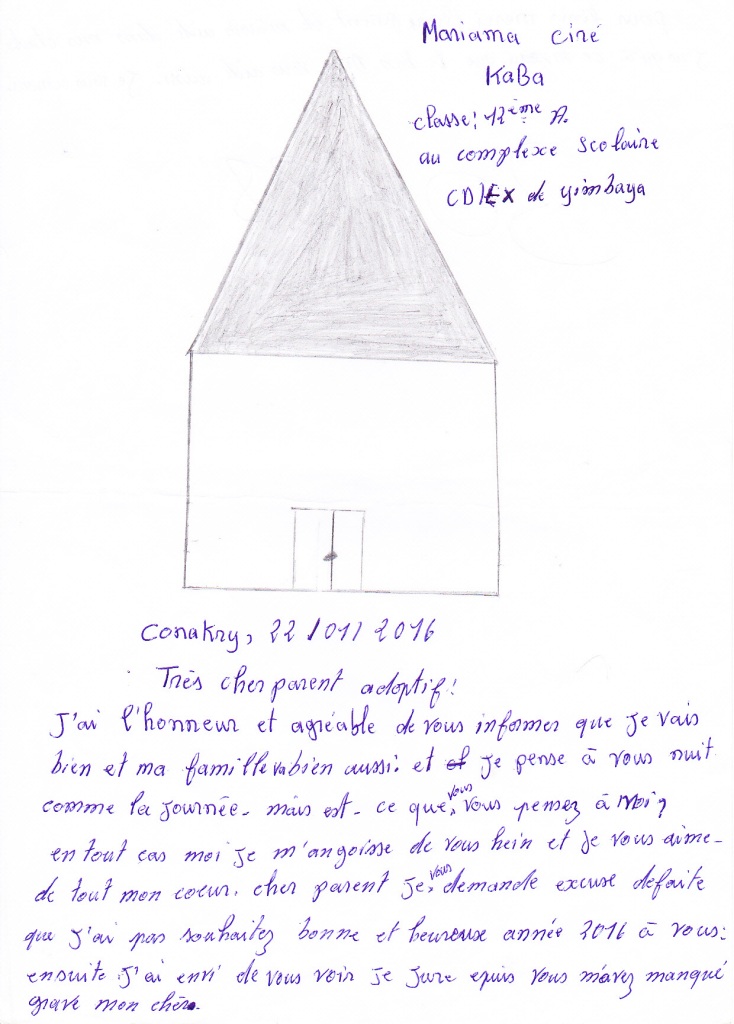 Mariama Ciré
KaBa
classe: 12ème A.
au complexe scolaire
de yimbaya
Conakry, 22/01/2016
Très cher parent adoptif!
J'ai l'honneur et agréable de vous informer que je vais
bien et ma famille va bien aussi. et je pense à vous nuit
comme la journée. mais est-ce que vous vous pensez à moi?
en tout cas moi je m'angoisse de vous hein et je vous aime
de tout mon coeur. cher parent je vous demande excuse defaite
que j'ai pas souhaitez bonne et heureuse année 2016 à vous:
ensuite j'ai envi de vous voir je jure epuis vous m'avez manqué
grave mon chèr.